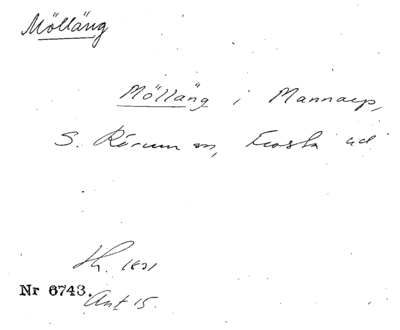 Mölläng
Mölläng i Mannarp,
S. Rörum sn, Frosta hd
Sk. 1831
Nr 6743. Ant 15.